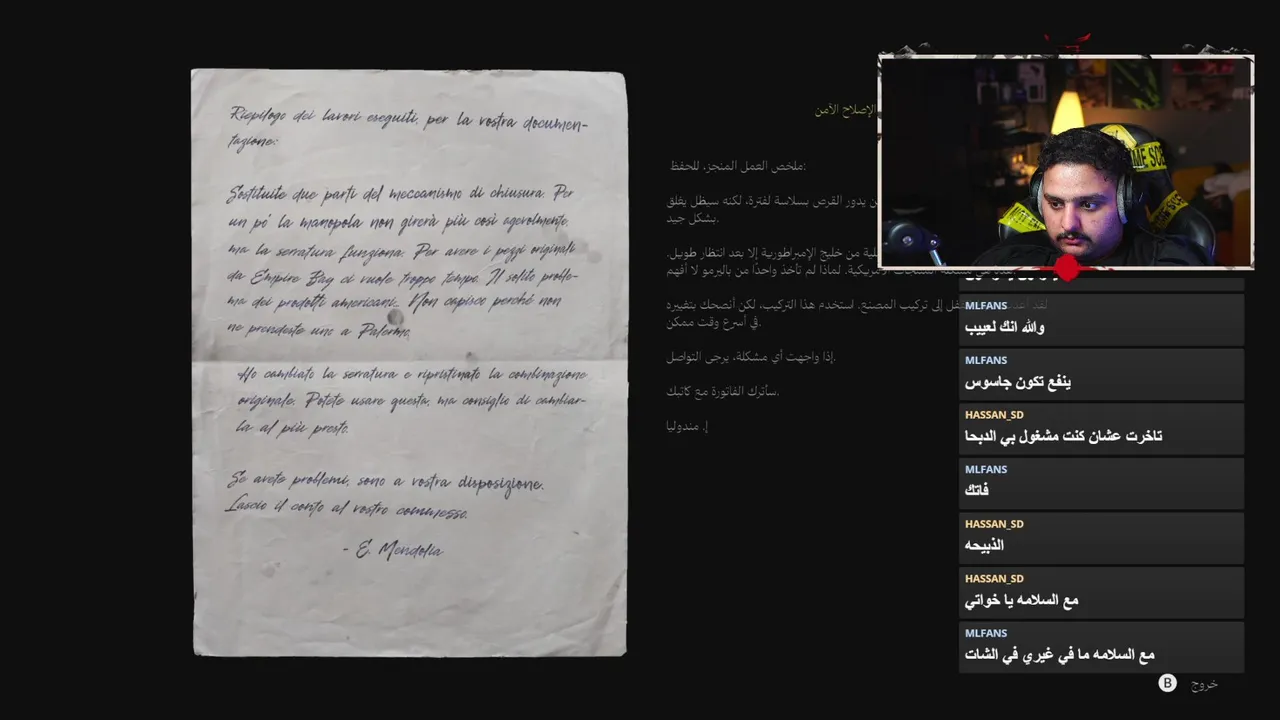 Riepilogo dei lavori eseguiti, per la vostra documen-
tazione:
Sostituite due parti del meccanismo di chiusura. Per
un po' la manopola non girerà più così agevolmente,
ma la serratura funziona. Per avere i pezzi originali
da Empire Bay ci vuole troppo tempo. Il solito proble-
ma dei prodotti americani... Non capisco perché non
ne prendeste uno a Palermo.
Ho cambiato la serratura e ripristinato la combinazione
originale. Potete usare questa, ma consiglio di cambiar-
la al più presto.
Se avete problemi, sono a vostra disposizione.
Lascio il conto al vostro commesso.
- E. Mendolia
الإصلاح الآمن
ملخص العمل المنجز، للحفظ:
يدور القرص بسلاسة لفترة، لكنه سيظل يغلق
بشكل جيد.
من خليج الإمبراطورية إلا بعد انتظار طويل.
الأمريكية. لماذا لم تأخذ واحدًا من باليرمو لا أفهم
إلى تركيب المصنع. استخدم هذا التركيب، لكن أنصحك بتغييره
في أسرع وقت ممكن.
إذا واجهت أي مشكلة، يرجى التواصل.
سأترك الفاتورة مع كاتبك.
إ. مندوليا
CRIME SCE
MLFANS
والله انك لعييب
MLFANS
ينفع تكون جاسوس
HASSAN_SD
تاخرت عشان كنت مشغول بي الدبحا
MLFANS
فاتك
HASSAN_SD
الذبيحه
HASSAN_SD
مع السلامه يا خواتي
MLFANS
مع السلامه ما في غيري في الشات
B خروج